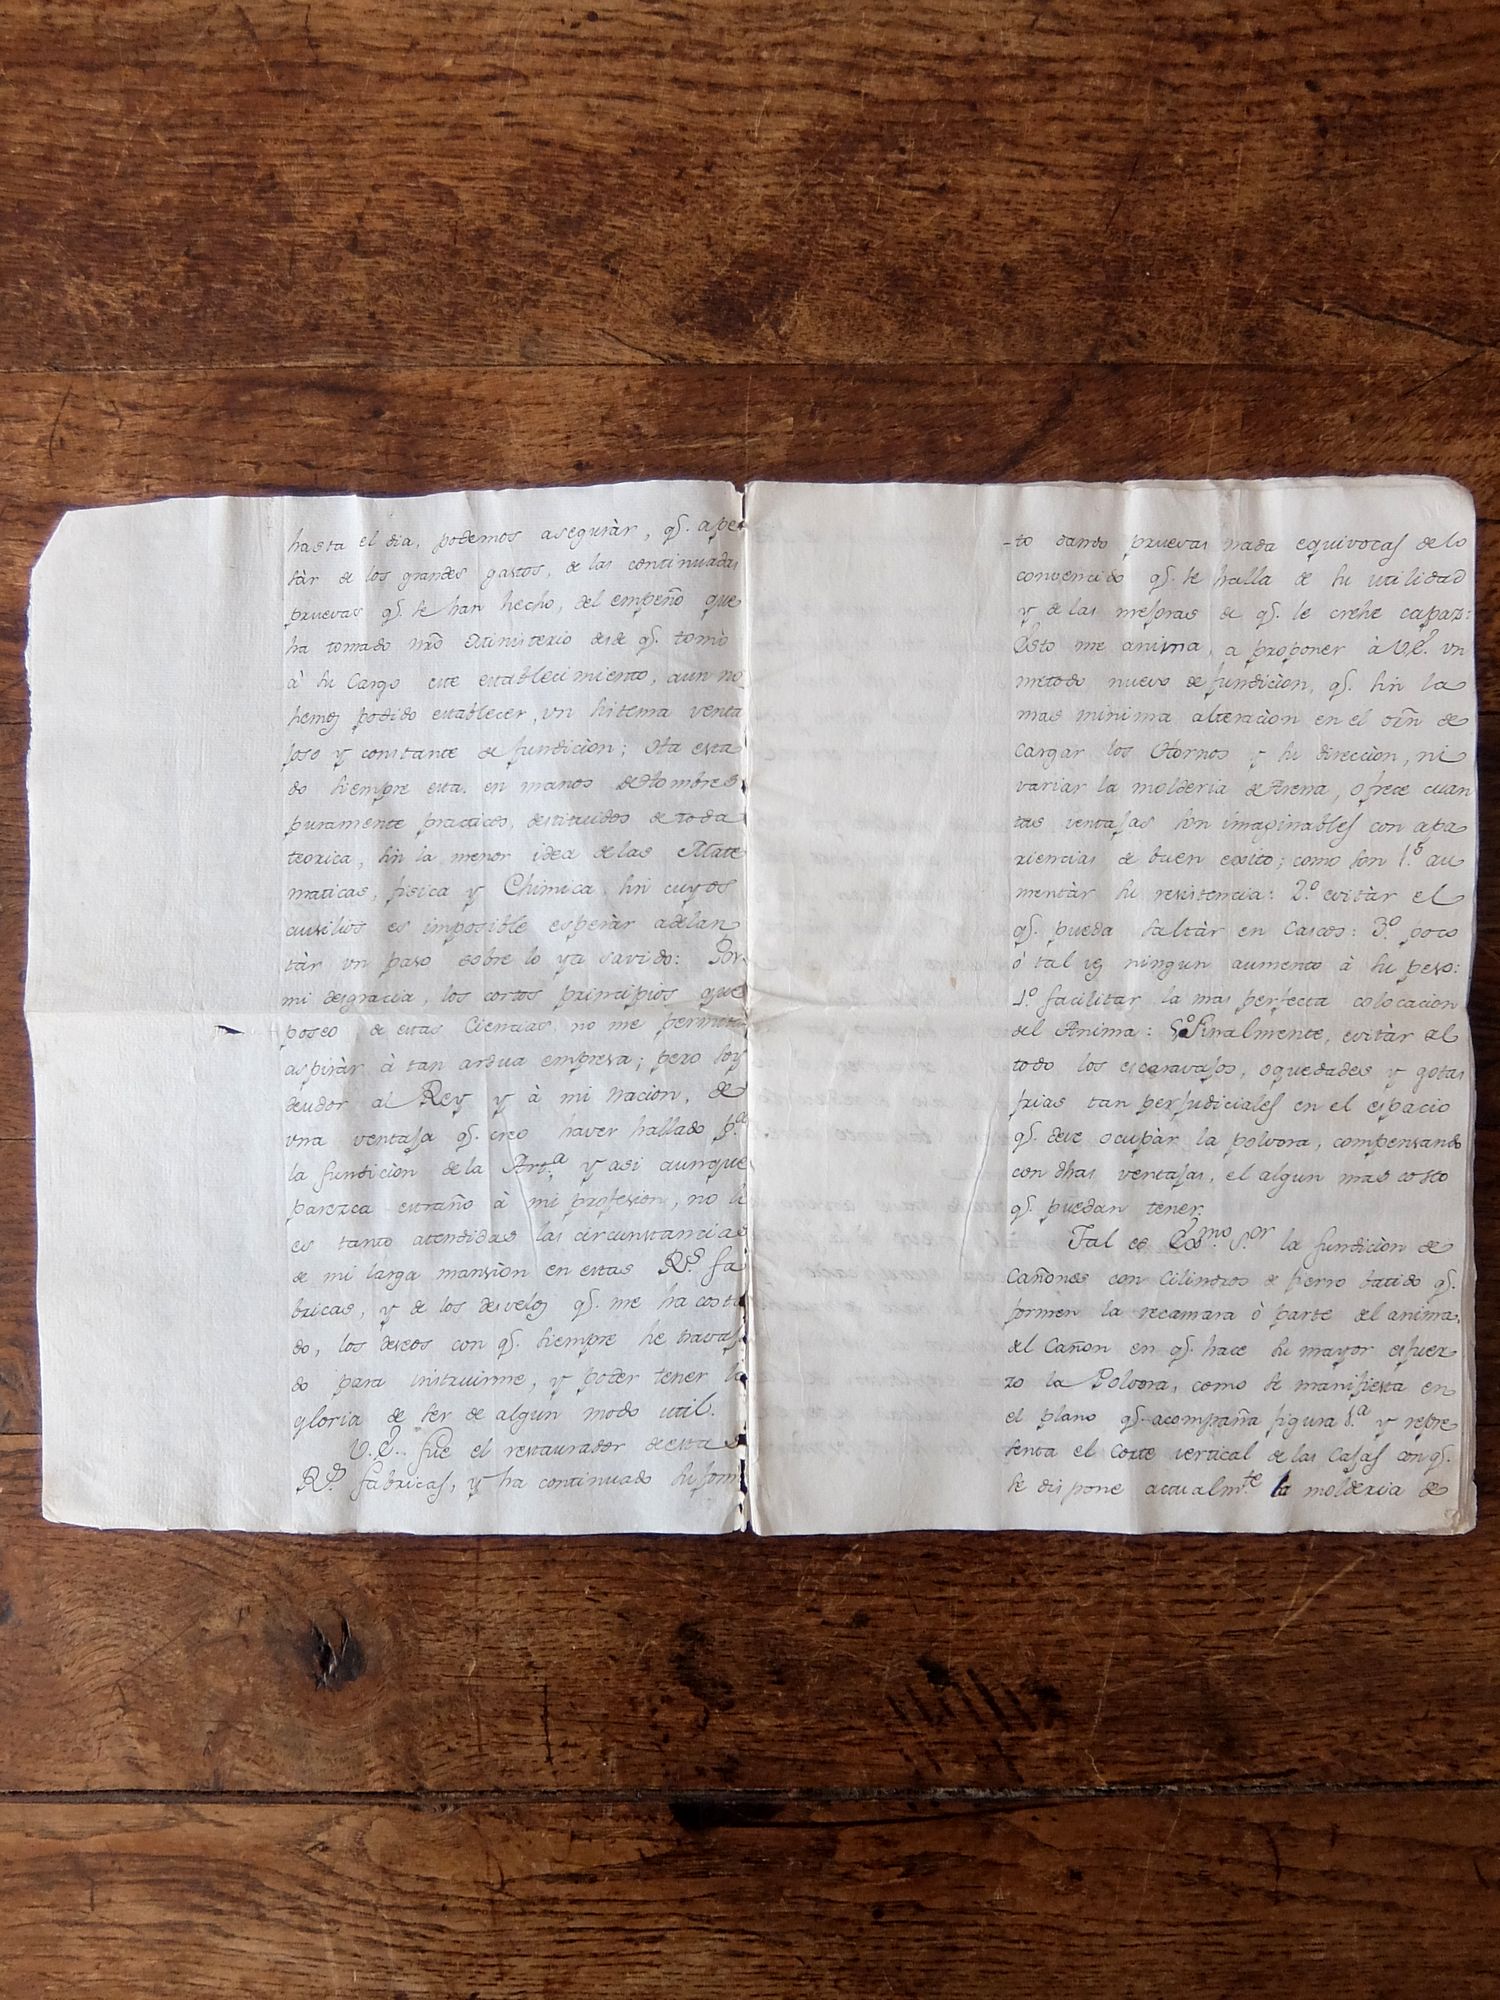 hasta el dia, podemos aseguràr, qe. ape
sàr de los grandes gastos, de las continuadas
pruevas qe. se han hecho, del empeño que
ha tomado nrõ Ministerio desde qe. tomò
à su Cargo este establecimiento, aun no
hemos podido establecer, un sistema venta
joso y constante de fundiciòn; Ha esta
do siempre esta en manos de Hombres
puramente practicos, destituidos de toda
teorica, sin la menor idea de las Mate
maticas, fisica y Chimica, sin cuyos
auxilios es imposible esperàr adelan
tàr un paso sobre lo ya savido: Por
mi desgracia, los cortos principios que
poseo de estas Ciencias, no me permiten
aspiràr à tan ardua empresa; pero soy
deudor al Rey y à mi Nacion, de
una ventaja qe. creo haver hallado pa.
la fundiciòn de la Arta. y asi aunque
parezca estraño à mi profesion, no lo
es tanto atendidas las circunstancias
de mi larga mansiòn en estas Rs. fa
bricas, y de los desvelos qe. me ha costa
do, los deseos con qe. siempre he travaja
do para instruirme, y poder tener la
gloria de ser de algun modo util.
V.E. fue el restaurador de estas
Rs. fabricas, y ha continuado su fomen
-to dando pruevas nada equivocas de lo
convencido qe. se halla de su utilidad
y de las mejoras de qe. le crehe capaz:
Esto me anima, a proponer à V.E. un
metodo nuevo de fundiciòn, qe. sin la
mas minima alteraciòn en el orñ de
cargar los Hornos y su direcciòn, ni
variar la molderia de Arena, ofrece cuan
tas ventajas son imaginables con apa
riencias de buen exito; como son 1.º au
mentàr su resistencia: 2.º evitàr el
qe. pueda saltàr en Cascos: 3.º poco
ò tal vez ningun aumento à su peso:
4.º facilitar la mas perfecta colocacion
del Anima: 5.º Finalmente, evitàr del
todo los escaravajos, oquedades y gotas
frias tan perjudiciales en el espacio
qe. deve ocupàr la polvora, compensando
con dhas ventajas, el algun mas costo
qe. puedan tener.
Tal es Exmo. Sor. la fundiciòn de
Cañones con Cilindros de fierro batido qe.
formen la recamara ò parte del anima
del Cañon en qe. hace su mayor esfuer
zo la Polvora, como se manifiesta en
el plano qe. acompaña figura 1.ª y repre
senta el Corte vertical de las Cajas con qe.
se dispone actualmte. la molderia de